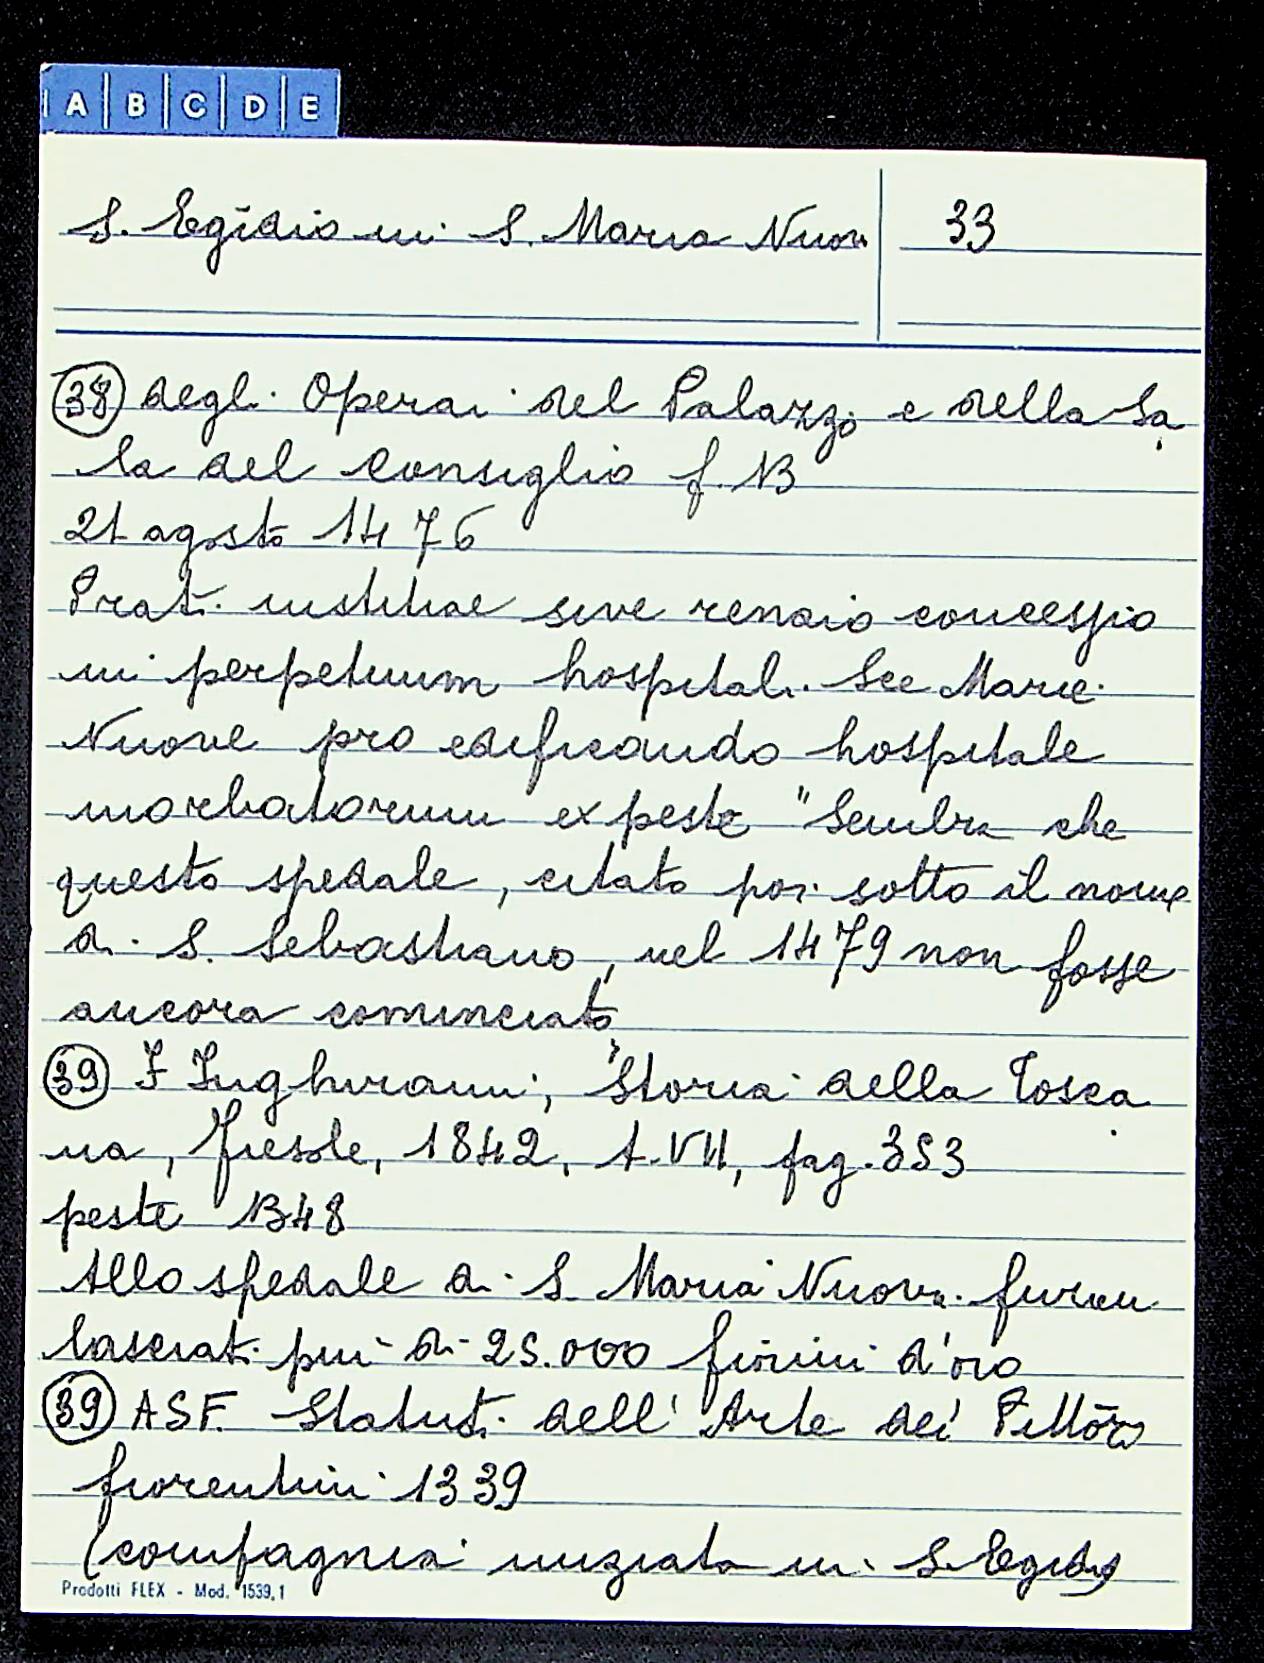 A B C D E
S. Egidio in S. Maria Nuova
33
(38) degli Operai del Palazzo e della Sa
la del Consiglio f. 13
21 agosto 1476
Prati iustitiae sive renaio concessio
in perpetuum hospitali See Marie
Nuove pro edificando hospitale
morbatorum ex peste "Sembra che
questo spedale, citato poi sotto il nome
di S. Sebastiano, nel 1479 non fosse
ancora cominciato"
(39) F Inghirami, Storia della Tosca
na, Fiesole, 1842, t. VII, pag. 353
peste 1348
Allo spedale di S. Maria Nuova furon
lasciati più di 25.000 fiorini d'oro
(39) ASF. Statuti dell'Arte dei Pittori
fiorentini 1339
(compagnia iniziata in S. Egidio)
Prodotti FLEX - Mod. 1539,1